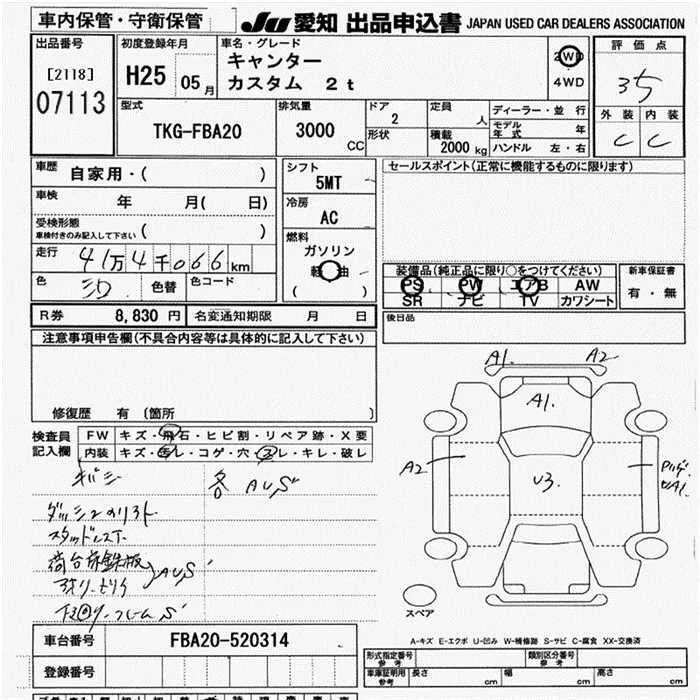 車内保管・守衛保管
JU 愛知 出品申込書 JAPAN USED CAR DEALERS ASSOCIATION
出品番号
[2118]
07113
初度登録年月
H25 05 月
車名・グレード
キャンター
カスタム 2t
2WD
4WD
評価点
外装 内装
C C
型式
TKG-FBA20
排気量
3000 CC
ドア
2
形状
定員
人
積載
2000 kg
ディーラー・並行
モデル年式 年
ハンドル 左・右
車歴 自家用・( )
車検 年 月( 日)
受検形態
車検付きのみ記入して下さい ( )
走行 41万4千066 km
色 色替 色コード
シフト
5MT
冷房
AC
燃料
ガソリン
軽油
( )
セールスポイント(正常に機能するものに限ります)
装備品(純正品に限り○をつけてください)
PS PW エアB AW
SR ナビ TV カワシート
新車保証書
有・無
後日品
R券 8,830 円 名変通知期限 月 日
注意事項申告欄(不具合内容等は具体的に記入して下さい)
修復歴 有 〔箇所 〕
検査員
記入欄
FW キズ・飛石・ヒビ割・リペア跡・X要
内装 キズ・汚レ・コゲ・穴・スレ・キレ・破レ
A1. A2
A1.
A2
U3.
UA1
各 AUS
スタッドレス
荷台床鉄板
AUS
スペア
A-キズ E-エクボ U-凹み W-補修跡 S-サビ C-腐食 XX-交換済
車台番号 FBA20-520314
登録番号
形式指定番号
参考
類別区分番号
参考
車庫証明用
参考
長さ cm 幅 cm 高さ cm